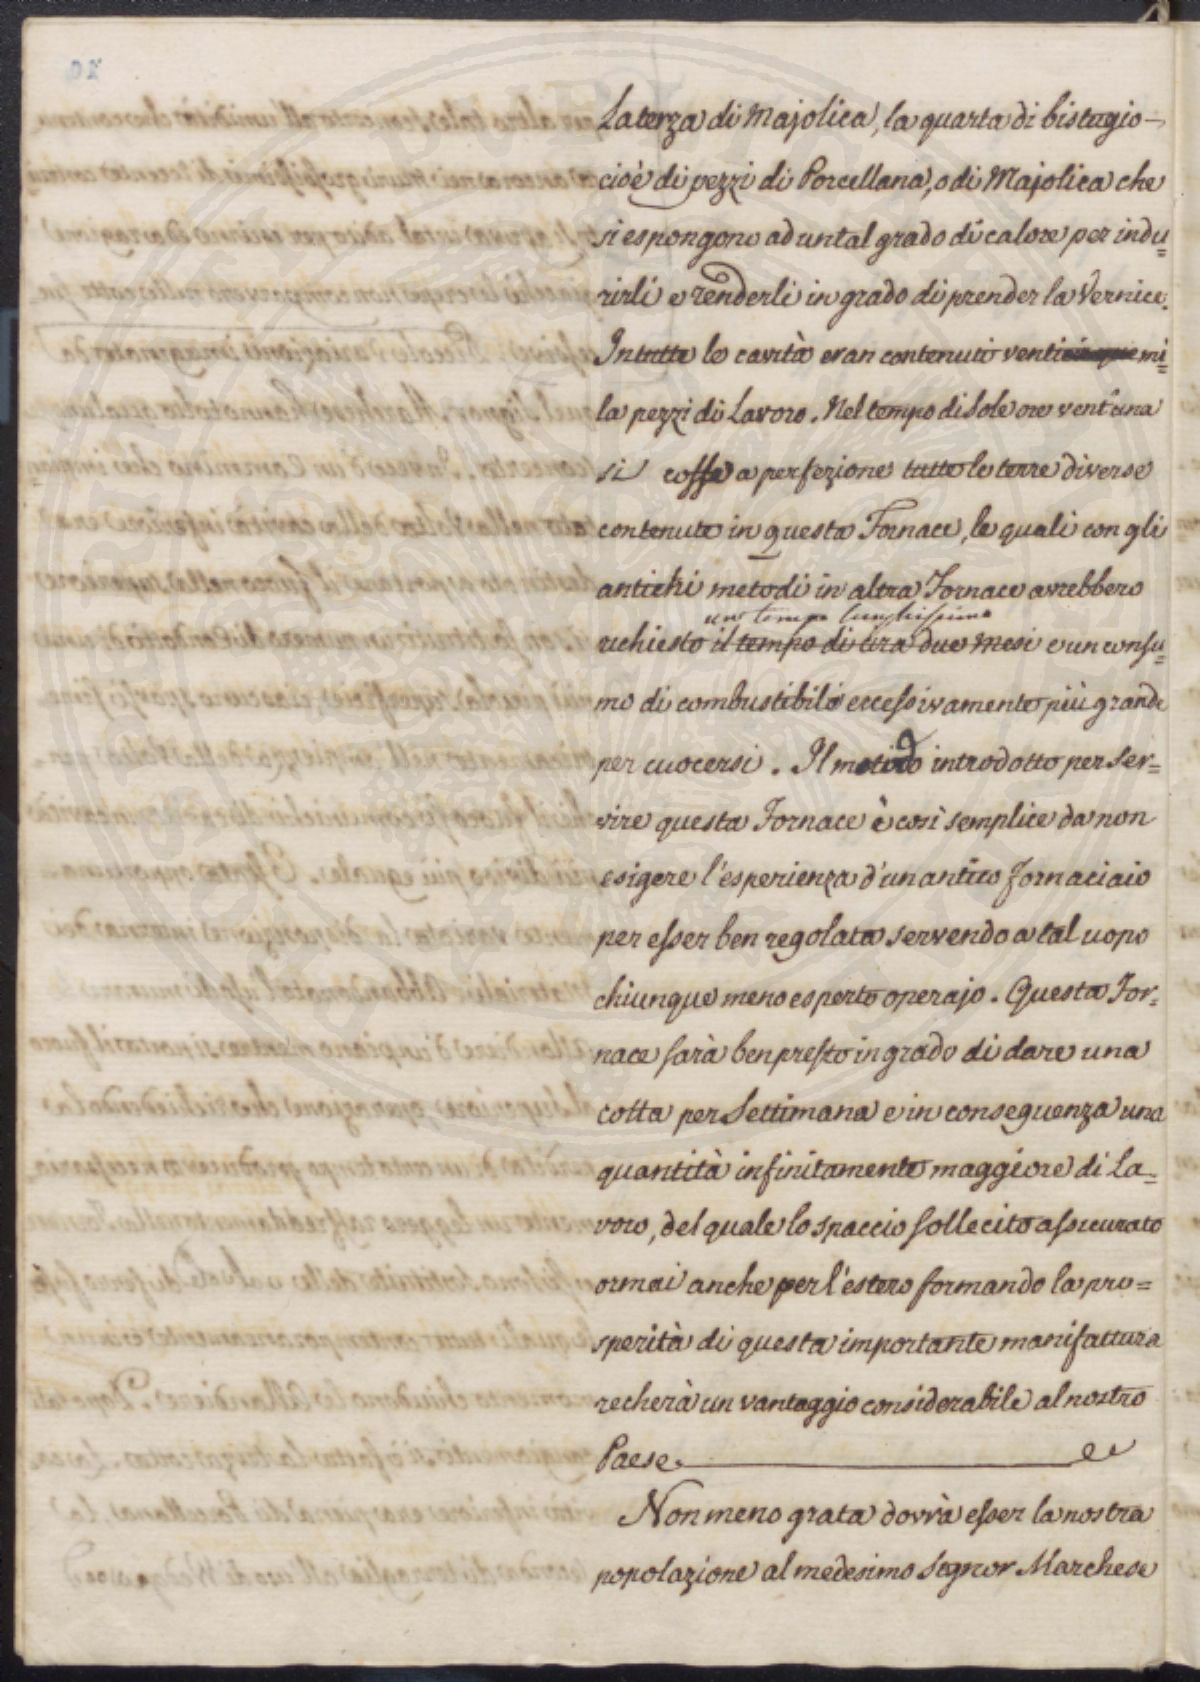 La terza di Majolica, la quarta di bistugio -
cioè di pezzi di Porcellana, o di Majolica che
si espongono ad un tal grado di calore per indu=
rirli e renderli in grado di prender la Vernice.
In tutte le cavità eran contenuti venticinquemi=
la pezzi di Lavoro. Nel tempo di sole ore vent'una
si cosse a perfezione tutte le terre diverse
contenute in questa Fornace, le quali con gli
antichi metodi in altra Fornace avrebbero
un tempo lunghissimo
richiesto il tempo di circa due mesi e un consu=
mo di combustibile eccessivamente più grande
per cuocersi. Il metodo introdotto per ser=
vire questa Fornace è così semplice da non
esigere l'esperienza d'un antico fornaciaio
per esser ben regolata servendo a tal uopo
chiunque meno esperto operajo. Questa For=
nace sarà ben presto in grado di dare una
cotta per Settimana e in conseguenza una
quantità infinitamente maggiore di la=
voro, del quale lo spaccio sollecito assicurato
ormai anche per l'estero formando la pro=
sperità di questa importante manifattura
recherà un vantaggio considerabile al nostro
Paese.
Non meno grata dovrà esser la nostra
popolazione al medesimo Signor Marchese